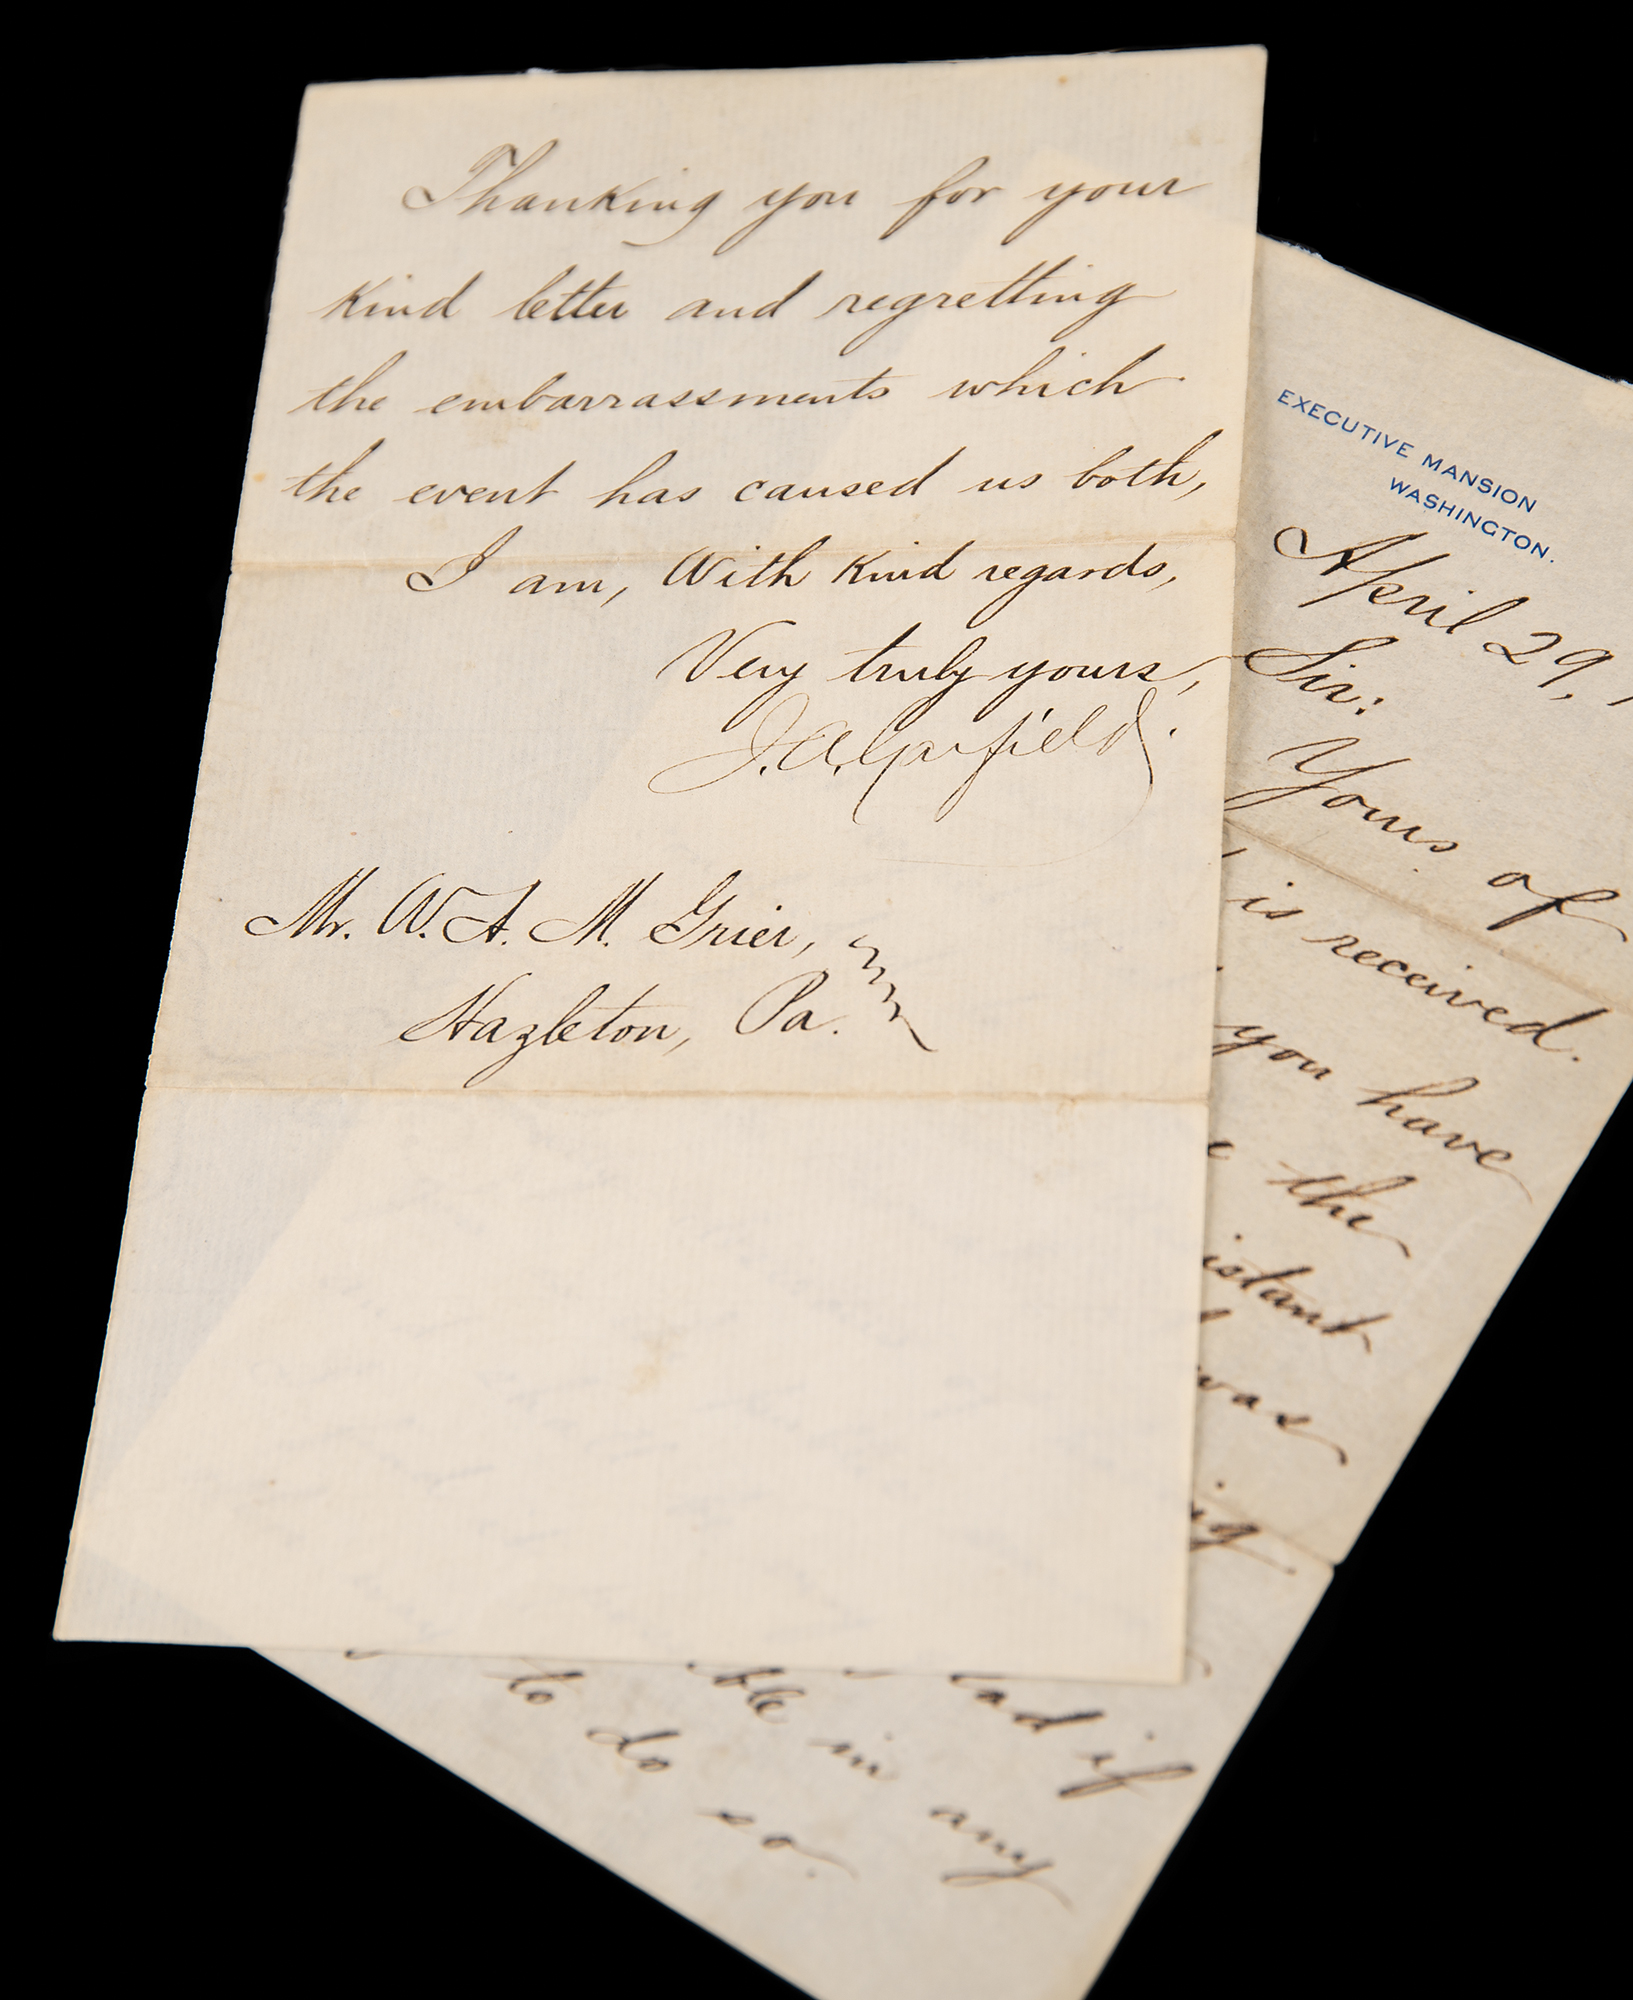 Thanking you for your
kind letter and regretting
the embarrassments which
the event has caused us both,
I am, With kind regards,
Very truly yours,
J. A. Garfield.
Mr. W. A. M. Grier,
Hazleton, Pa.
EXECUTIVE MANSION
WASHINGTON.
April 29,
Sir:
Yours of
is received.
you have
the
was
if
in any
to do so.